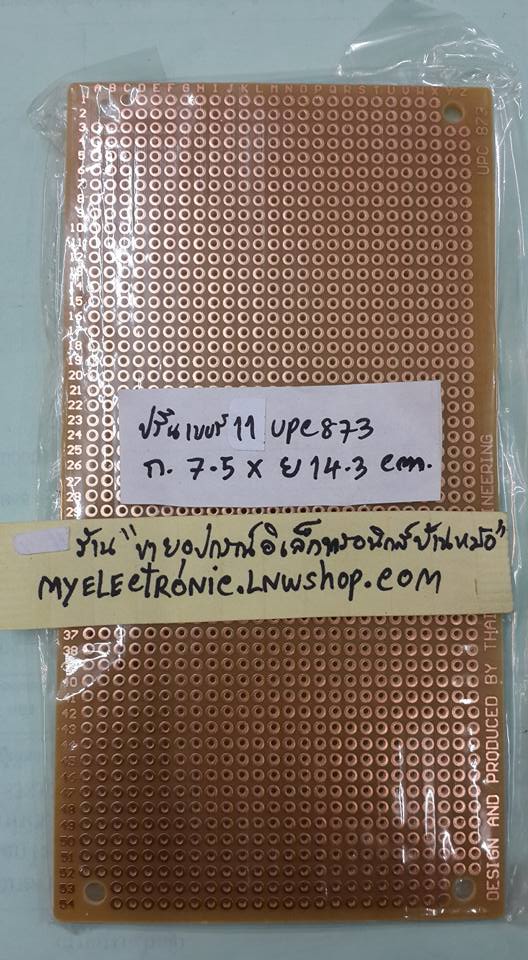 A B C D E F G H I J K L M N O P Q R S T U V W X Y Z
1
2
3
4
5
6
7
8
9
10
11
12
13
14
15
16
17
18
19
20
21
22
23
24
25
26
27
28
29
UPC 873
ปริ๊นเบอร์ 11 UPC873
ก. 7.5 X ย 14.3 cm.
ร้าน "ขายอุปกรณ์อิเล็กทรอนิกส์บ้านหม้อ"
MYELECTRONIC.LNWSHOP.COM
37
38
39
40
41
42
43
44
45
46
47
48
49
50
51
52
53
54
DESIGN AND PRODUCED BY THAI